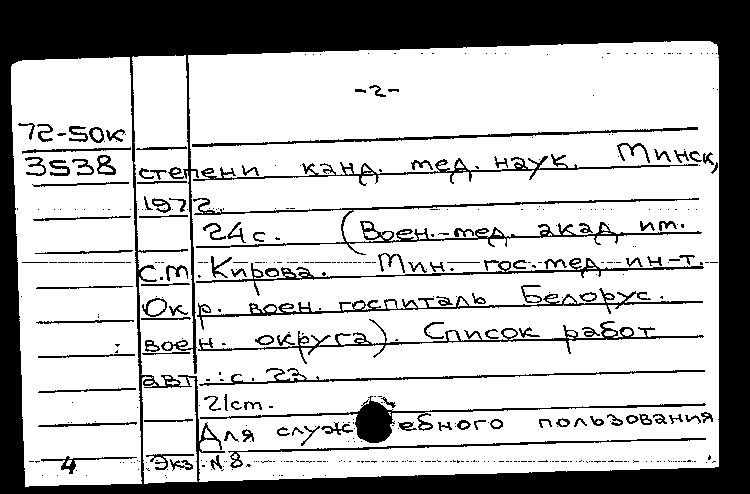 -2-
72-50к
3538 степени канд. мед. наук. Минск,
1972
24с. (Воен.-мед. акад. им.
С.М. Кирова. Мин. гос. мед. ин-т.
Окр. воен. госпиталь Белорус.
воен. округа). Список работ
авт.: с. 23.
21см.
Для служебного пользования
4 Экз. №8.